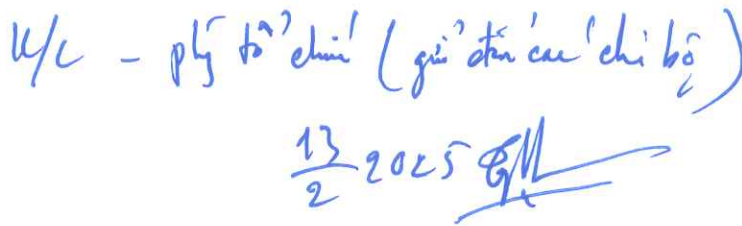 K/c - phg tổ chức (gửi đến các chi bộ)
13/2 2025